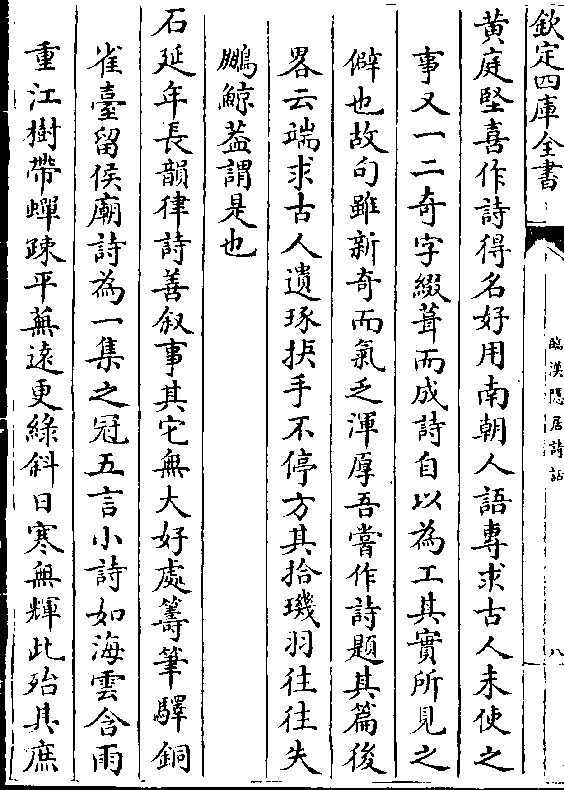 欽定四庫全書
臨漢隱居詩話
八
黃庭堅喜作詩得名好用南朝人語專求古人未使之
事又一二奇字綴葺而成詩自以為工其實所見之
僻也故句雖新奇而氣乏渾厚吾嘗作詩題其篇後
畧云端求古人遺琢抉手不停方其拾璣羽往往失
鵬鯨葢謂是也
石延年長韻律詩善叙事其它無大好處籌筆驛銅
雀臺留侯廟詩為一集之冠五言小詩如海雲含雨
重江樹帶蟬踈平蕪逺更綠斜日寒無輝此殆其庶